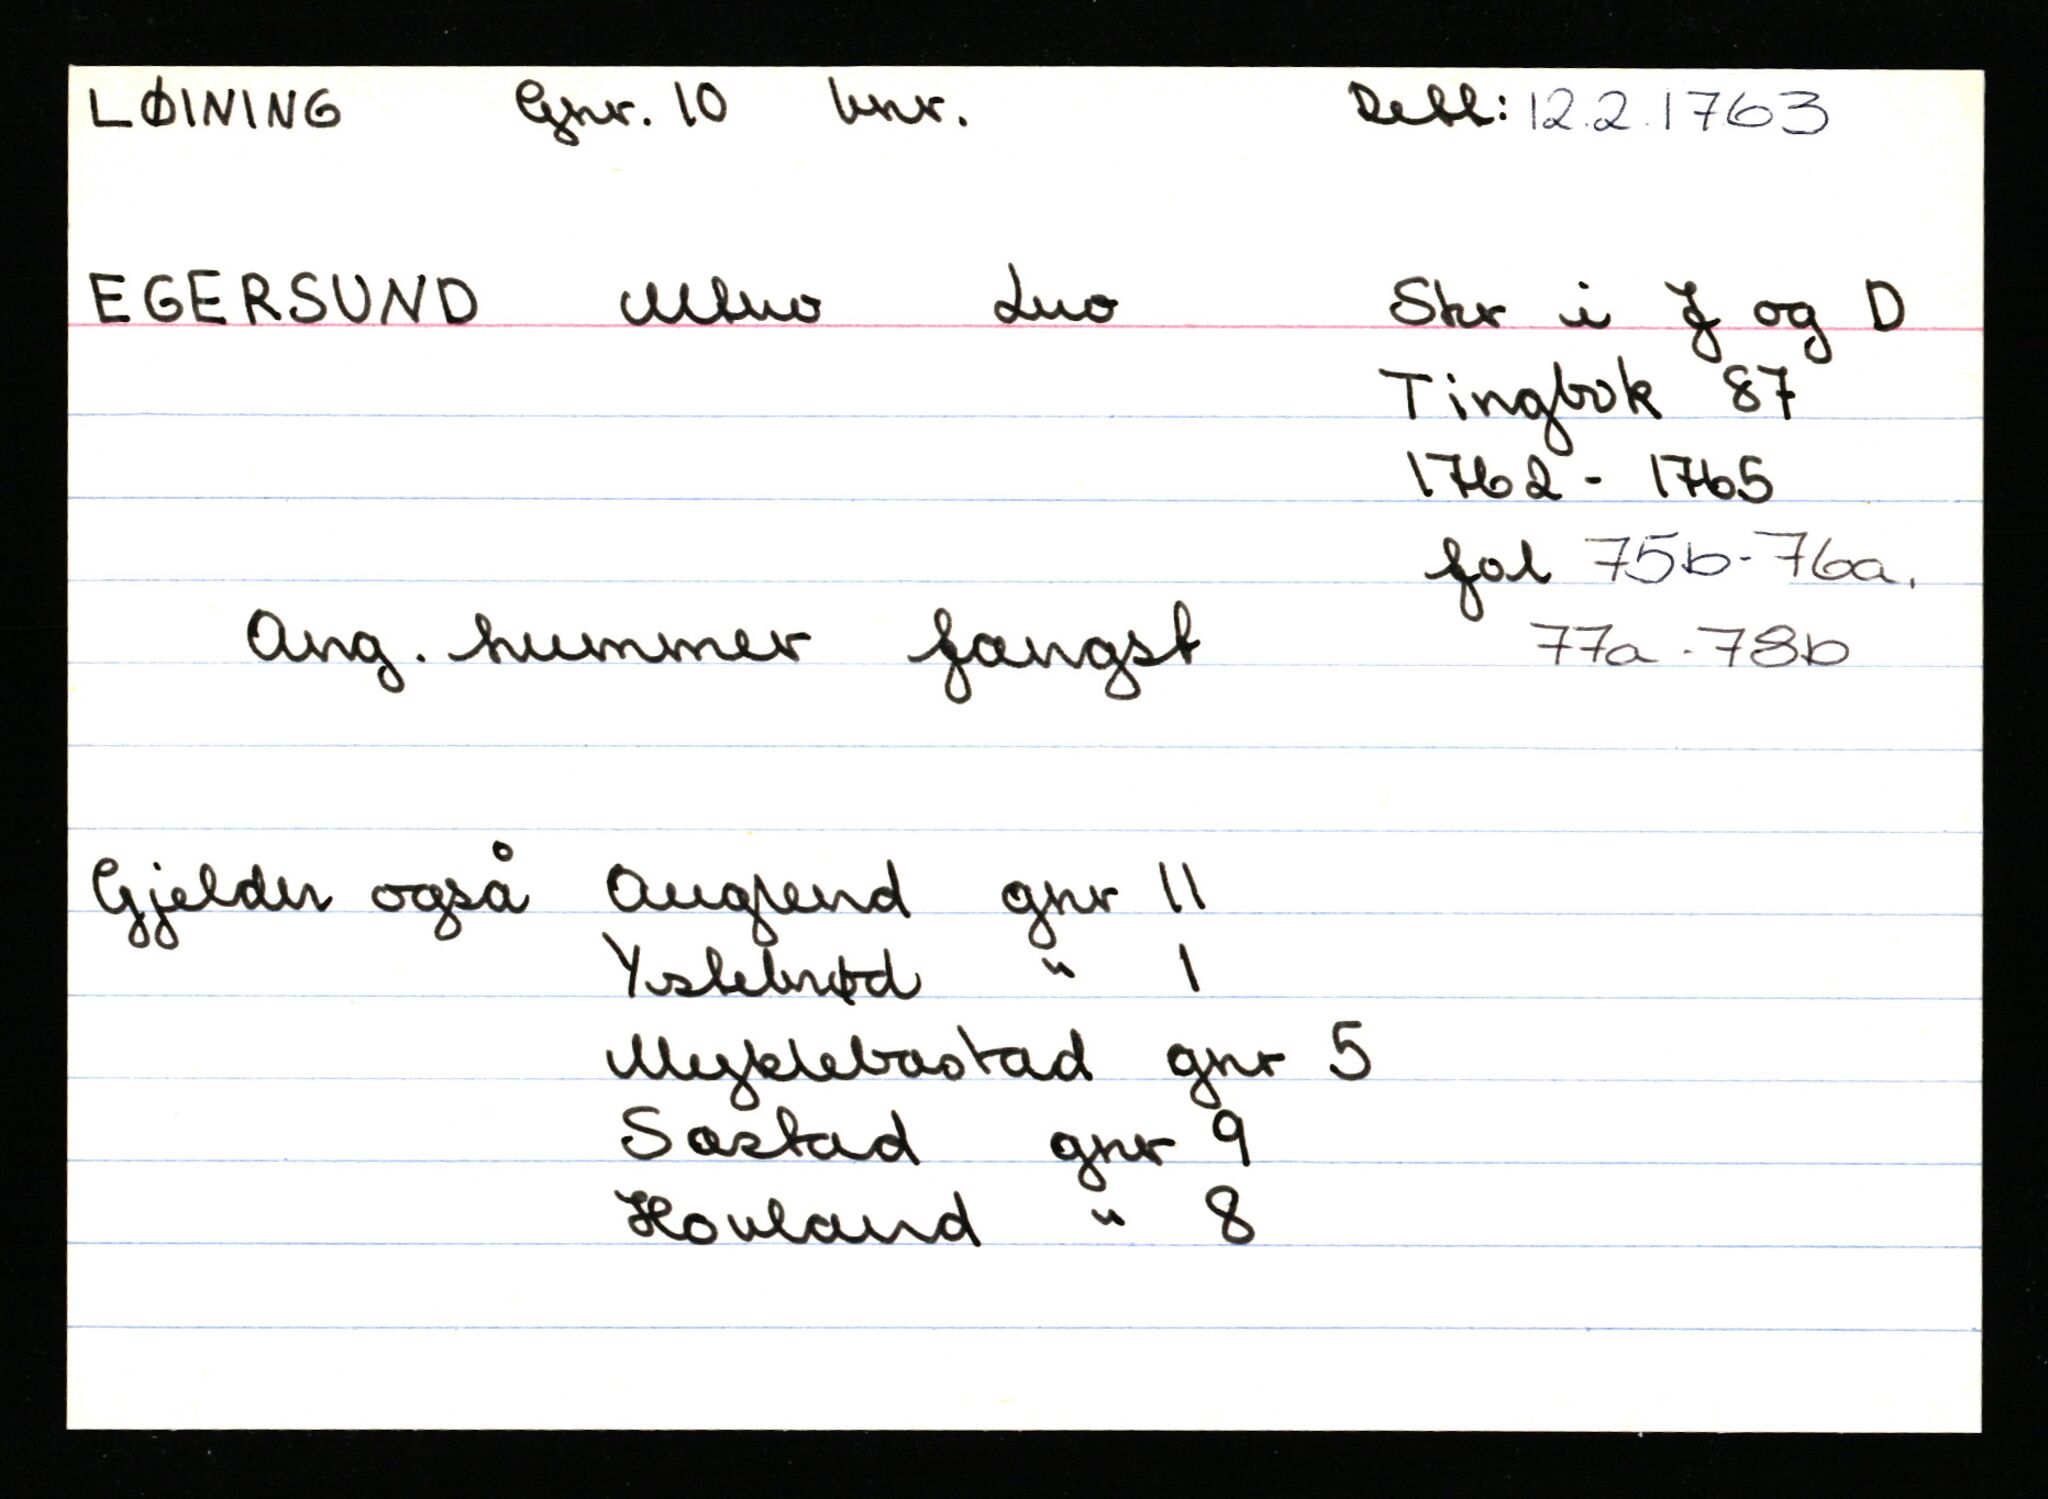 LØINING Gnr. 10 bnr. Dett: 12.2.1763
EGERSUND Skr i J og D
Tingbok 87
1762 - 1765
fol 75b-76a.
Ang. hummer fangst 77a-78b
Gjelder også Auglend gnr 11
Ystebrød " 1
Myklebostad gnr 5
Sæstad gnr 9
Hovland " 8